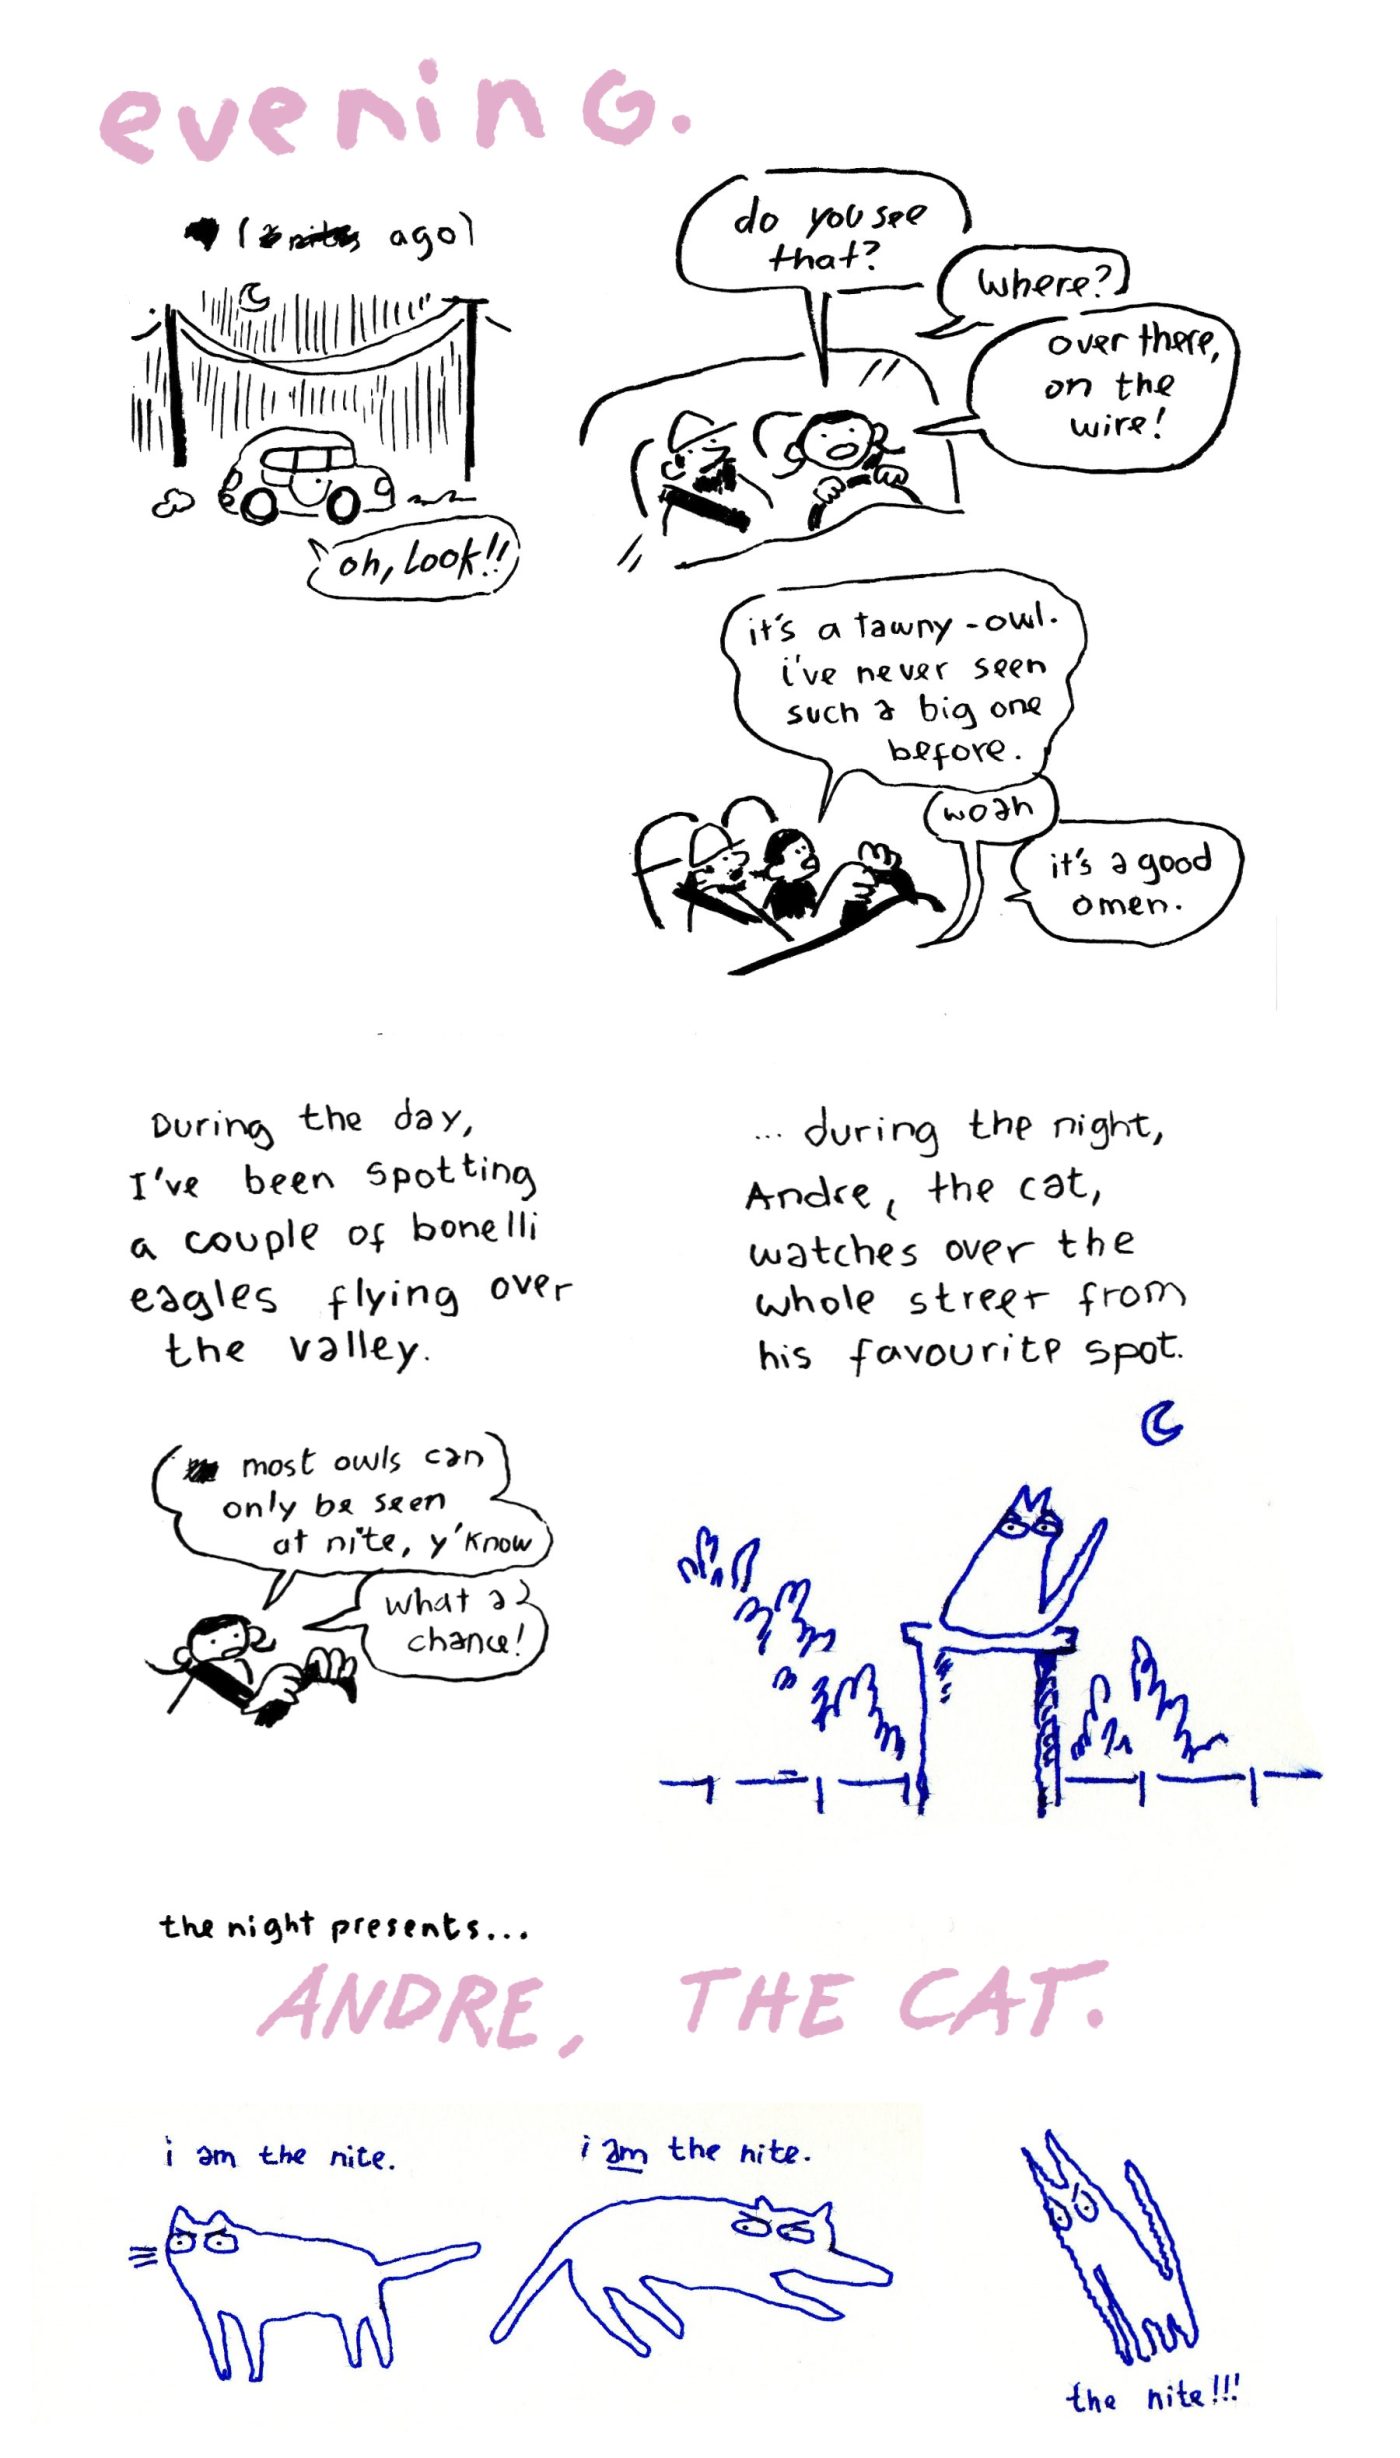 evening.
( ago)
oh, look!!
do you see
that?
where?
over there,
on the
wire!
it's a tawny-owl.
i've never seen
such a big one
before.
woah
it's a good
omen.
During the day,
I've been spotting
a couple of bonelli
eagles flying over
the valley.
... during the night,
Andre, the cat,
watches over the
whole street from
his favourite spot.
most owls can
only be seen
at nite, y'know
what a
chance!
the night presents...
ANDRE, THE CAT.
i am the nite.
i am the nite.
the nite!!!